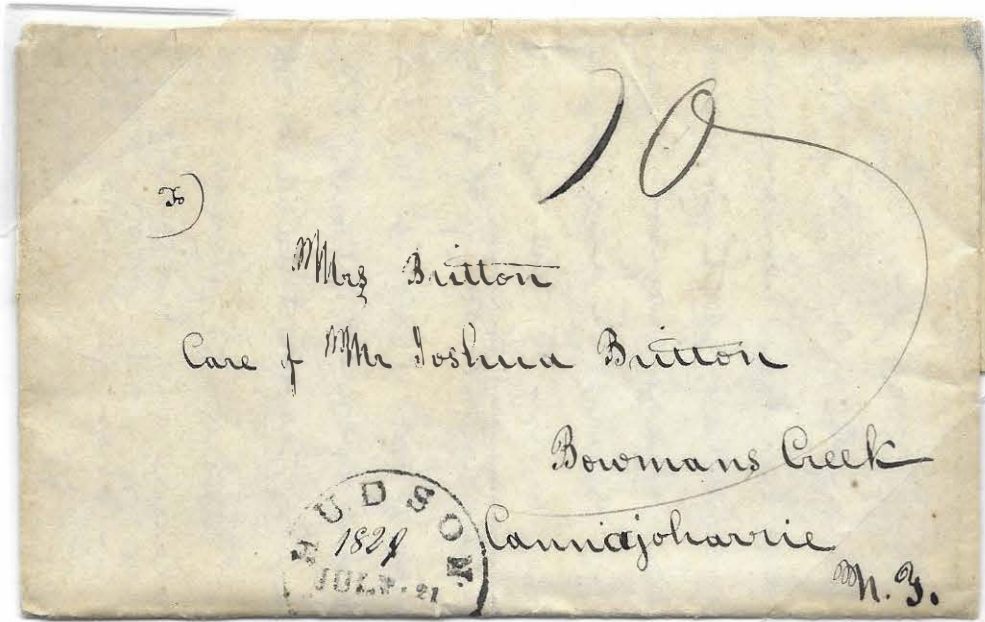 10
To
Mrs Britton
Care of Mr Joshua Britton
Bowmans Creek
Cannajoharrie
N. Y.
HUDSON
1829
JULY. 21